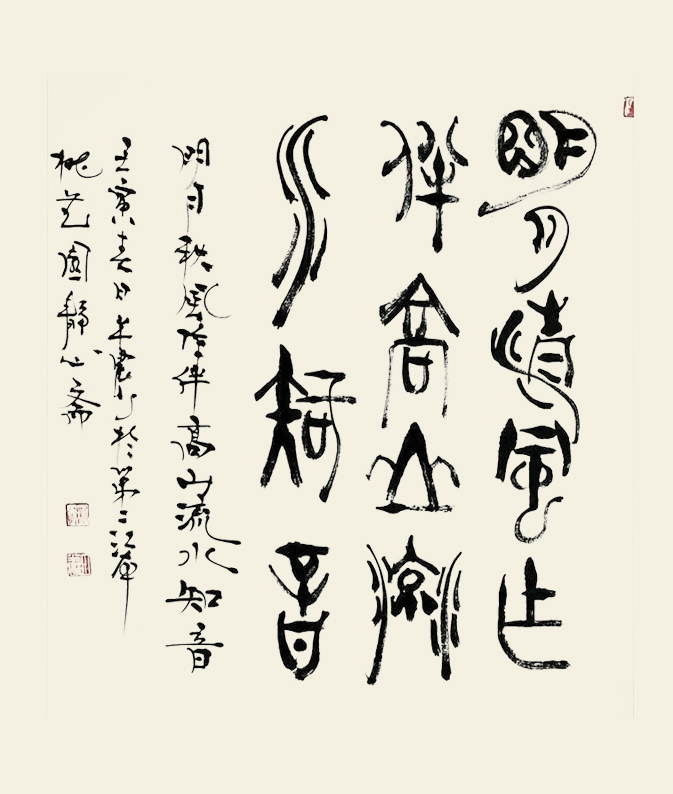 明月清風作
伴高山流
水知音
明月清風作伴高山流水知音
壬寅春日於第二江岸
桃花園靜心齋